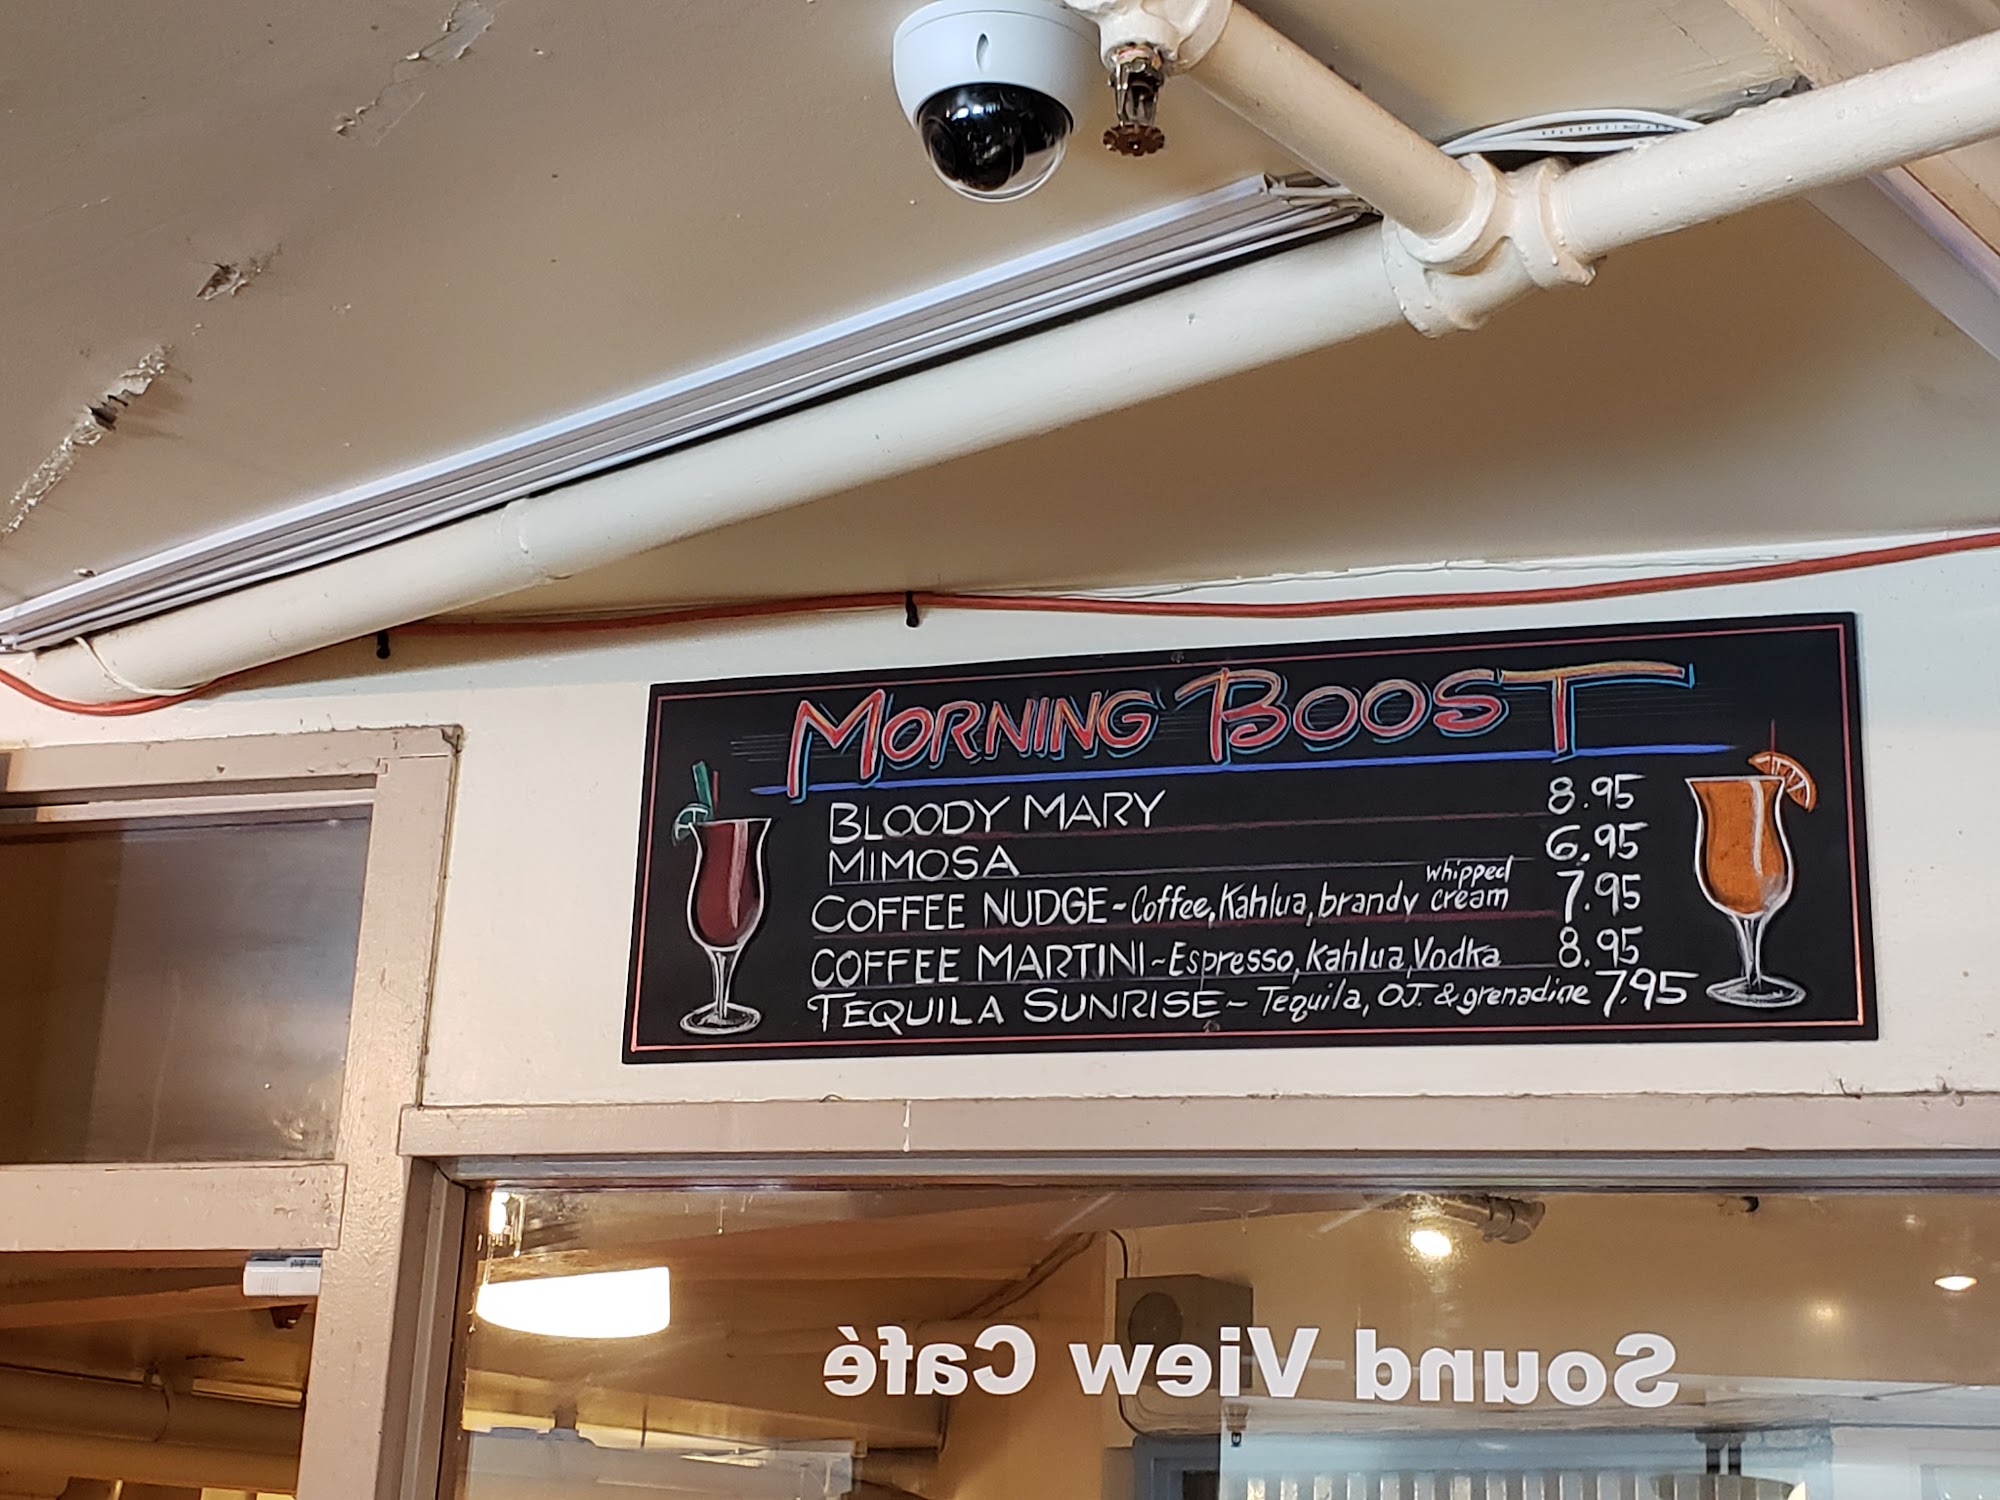 MORNING BOOST
BLOODY MARY 8.95
MIMOSA 6.95
COFFEE NUDGE~Coffee, Kahlua, brandy whipped cream 7.95
COFFEE MARTINI~Espresso, Kahlua, Vodka 8.95
TEQUILA SUNRISE~Tequila, OJ. & grenadine 7.95
Sound View Café